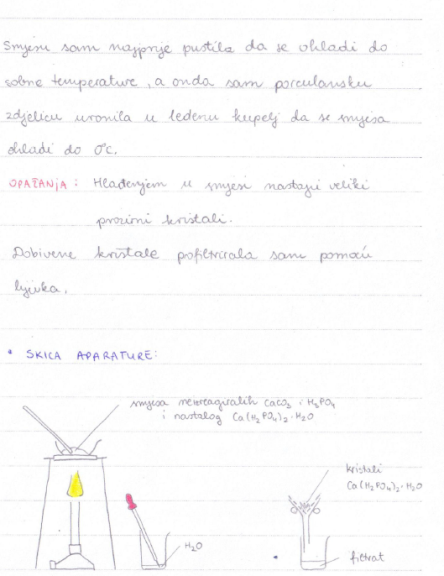 Smjesu sam najprije pustila da se ohladi do
sobne temperature, a onda sam porculansku
zdjelicu uronila u ledenu kupelj da se smjesa
ohladi do 0°C.
OPAŽANJA: Hlađenjem u smjesi nastaju veliki
prozirni kristali.
Dobivene kristale pofiltrirala sam pomoću
lijevka.
* SKICA APARATURE:
smjesa neizreagiralih CaCO3 i H3PO4
i nastalog Ca(H2PO4)2·H2O
kristali
Ca(H2PO4)2·H2O
H2O
filtrat